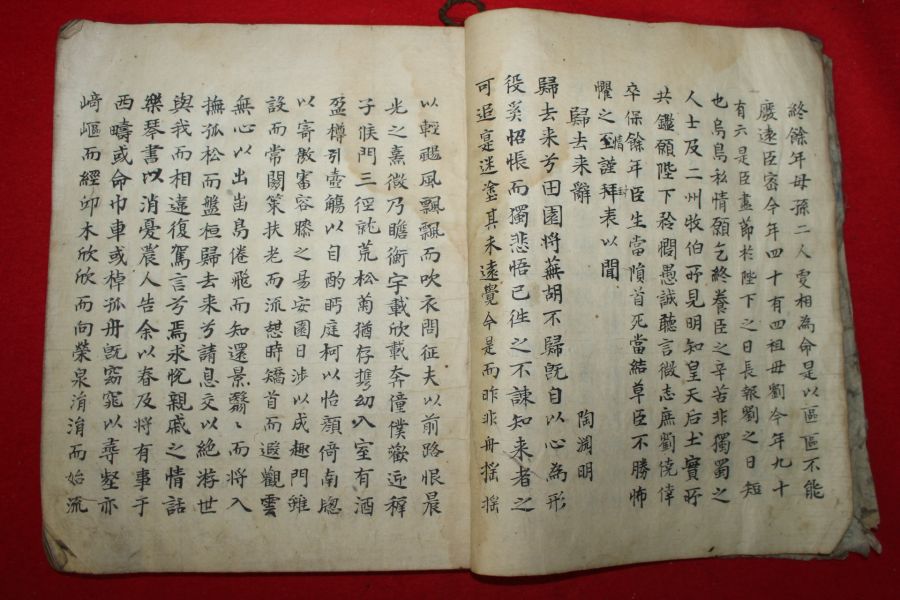 終餘年母孫二人更相為命是以區區不能
廢遠臣密今年四十有四祖母劉今年九十
有六是臣盡節於陛下之日長報劉之日短
也烏鳥私情願乞終養臣之辛苦非獨蜀之
人士及二州牧伯所見明知皇天后土實所
共鑑願陛下矜憫愚誠聽言微志庶劉僥倖
卒保餘年臣生當隕首死當結草臣不勝怖
懼之情至謹拜表以聞
歸去来辭
陶淵明
歸去来兮田園將蕪胡不歸既自以心為形
役奚惆悵而獨悲悟已徃之不諫知来者之
可追寔迷塗其未遠覺今是而昨非舟搖搖
以輕颺風飄飄而吹衣問征夫以前路恨晨
光之熹微乃瞻衡宇載欣載奔僮僕歡迎稺
子候門三徑就荒松菊猶存携幼入室有酒
盈樽引壺觴以自酌眄庭柯以怡顔倚南窓
以寄傲審容膝之易安園日涉以成趣門雖
設而常關策扶老而流憇時矯首而遐觀雲
無心以出峀鳥倦飛而知還景翳〻而將入
撫孤松而盤桓歸去来兮請息交以絶游世
與我而相違復駕言兮焉求悅親戚之情話
樂琴書以消憂農人告余以春及將有事于
西疇或命巾車或棹孤舟既窈窕以尋壑亦
﨑嶇而經卬木欣欣而向榮泉涓涓而始流